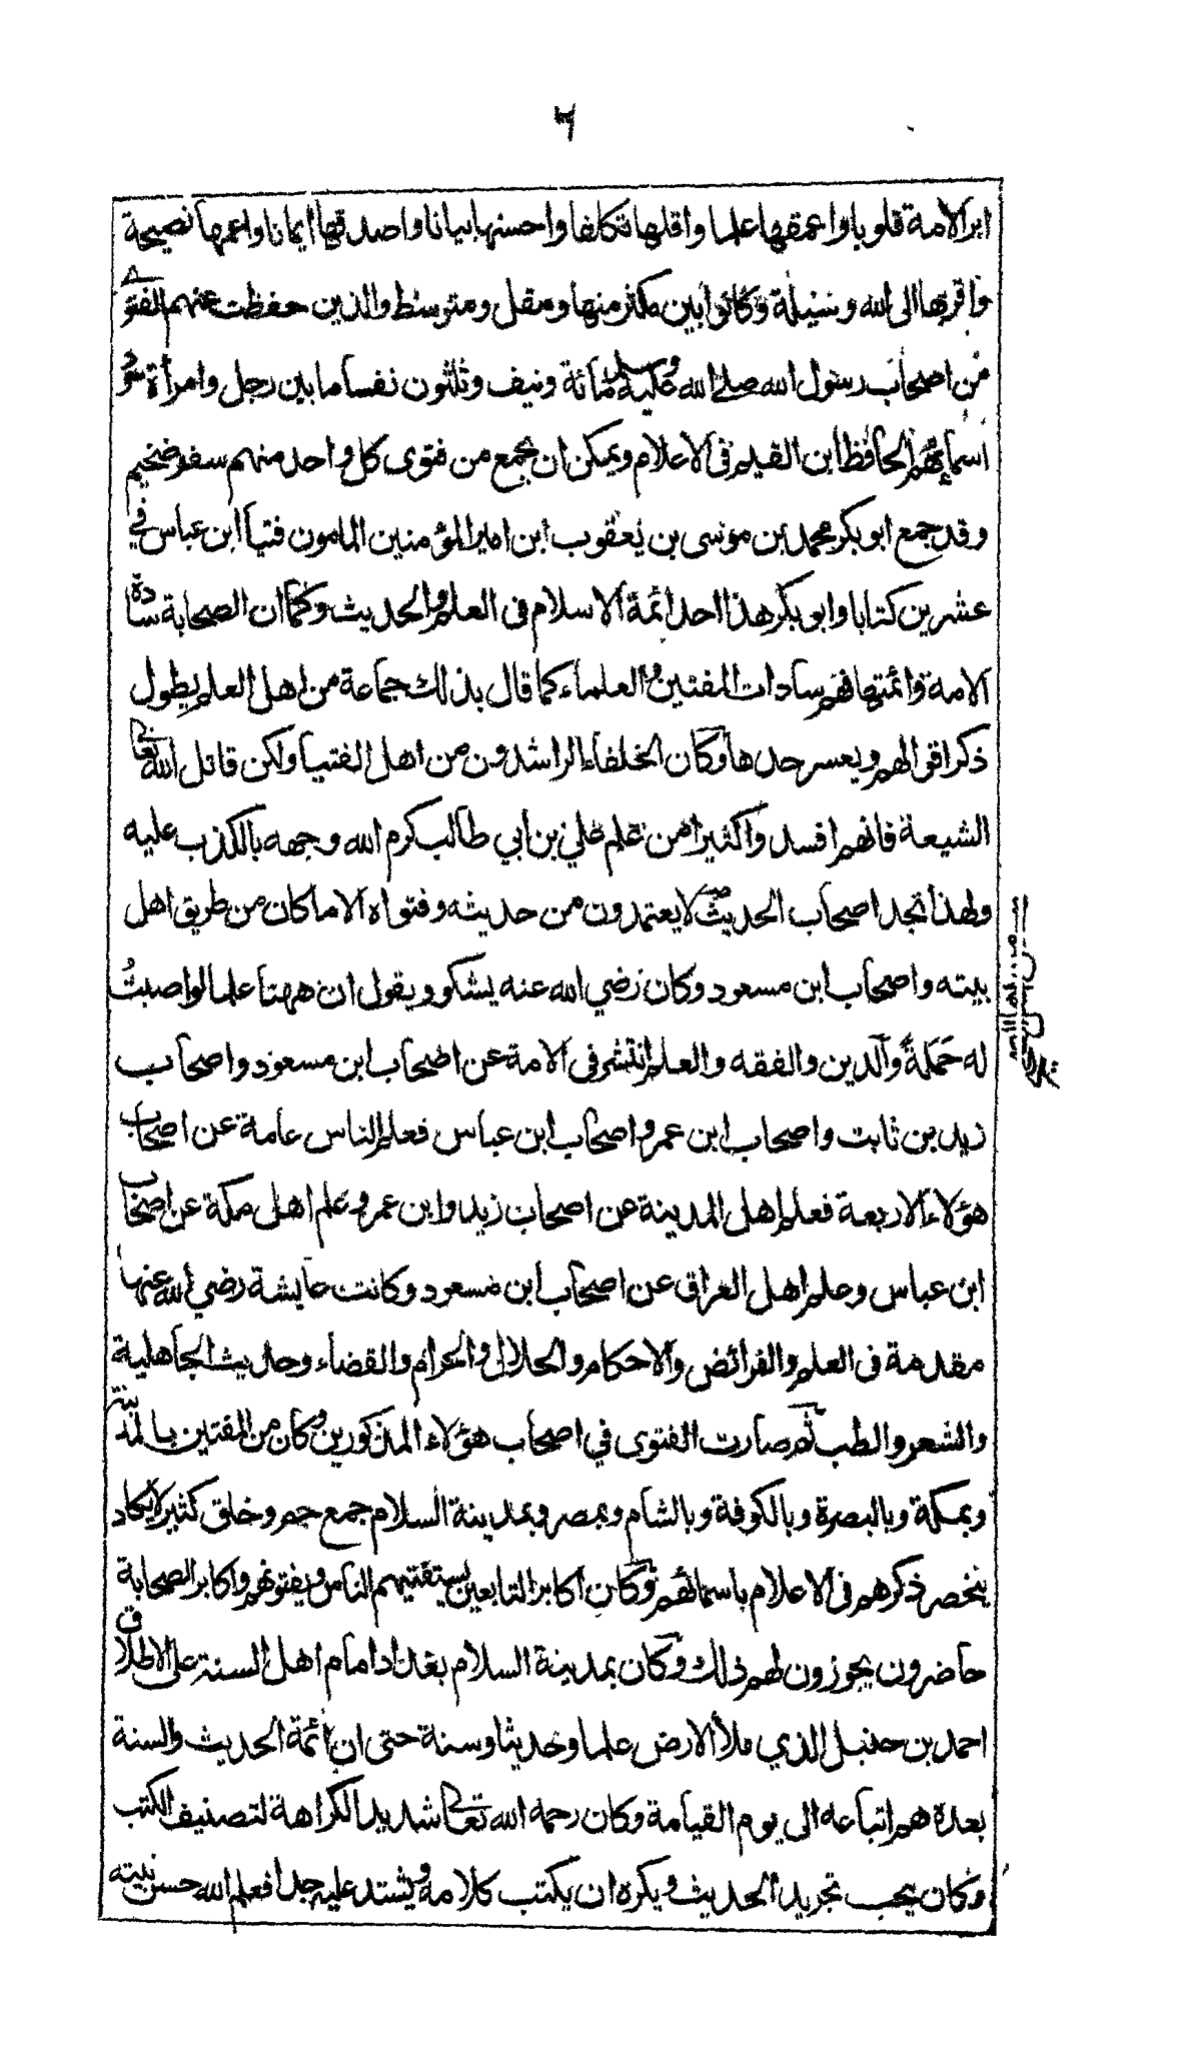 ٦
ابر الامة قلوبا واعمقها علما واقلها تكلفا واحسنها بيانا واصدقها ايمانا واعمها نصيحة
واقربها الى الله وسيلة وكانوا بين مكثر منها ومقل ومتوسط والذين حفظت عنهم الفتوى
من اصحاب رسول الله صلى الله عليه وسلم مائة ونيف وثلثون نفسا ما بين رجل وامرأة سرد
اسمائهم الحافظ ابن القيم في الاعلام ويمكن ان يجمع من فتوى كل واحد منهم سفر ضخيم
وقد جمع ابو بكر محمد بن موسى بن يعقوب ابن امير المؤمنين المامون فتيا ابن عباس في
عشرين كتابا وابو بكر هذا احد ائمة الاسلام في العلم والحديث وكما ان الصحابة سادة
الامة وائمتها فهم سادات المفتين والعلماء كما قال بذلك جماعة من اهل العلم يطول
ذكر اقوالهم ويعسر حدها وكان الخلفاء الراشدون من اهل الفتيا ولكن قاتل الله تعالى
الشيعة فانهم افسدوا كثيرا من علم علي بن ابي طالب كرم الله وجهه بالكذب عليه
ولهذا تجد اصحاب الحديث لا يعتمدون من حديثه وفتواه الا ما كان من طريق اهل
بيته واصحاب ابن مسعود وكان رضي الله عنه يشكو ويقول ان ههنا علما لو اصبتُ
له حَمَلةً والدين والفقه والعلم انتشر في الامة عن اصحاب ابن مسعود واصحاب
زيد بن ثابت واصحاب ابن عمر واصحاب ابن عباس فعلم الناس عامة عن اصحاب
هؤلاء الاربعة فعلم اهل المدينة عن اصحاب زيد وابن عمر وعلم اهل مكة عن اصحاب
ابن عباس وعلم اهل العراق عن اصحاب ابن مسعود وكانت عايشة رضي الله عنها
مقدمة في العلم والفرائض والاحكام والحلال والحرام والقضاء وحديث الجاهلية
والشعر والطب ثم صارت الفتوى في اصحاب هؤلاء المذكورين وكان من المفتين بالمدينة
وبمكة وبالبصرة وبالكوفة وبالشام وبمصر وبمدينة السلام جمع جم وخلق كثير لا يكاد
ينحصر ذكرهم في الاعلام باسمائهم وكان اكابر التابعين يستفتيهم الناس ويفتونهم واكابر الصحابة
حاضرون يجوزون لهم ذلك وكان بمدينة السلام بغداد امام اهل السنة على الاطلاق
احمد بن حنبل الذي ملأ الارض علما وحديثا وسنة حتى ان ائمة الحديث والسنة
بعده هم اتباعه الى يوم القيامة وكان رحمه الله تعالى شديد الكراهة لتصنيف الكتب
وكان يحب تجريد الحديث ويكره ان يكتب كلامه ويشتد عليه جدا فعلم الله حسن نيته